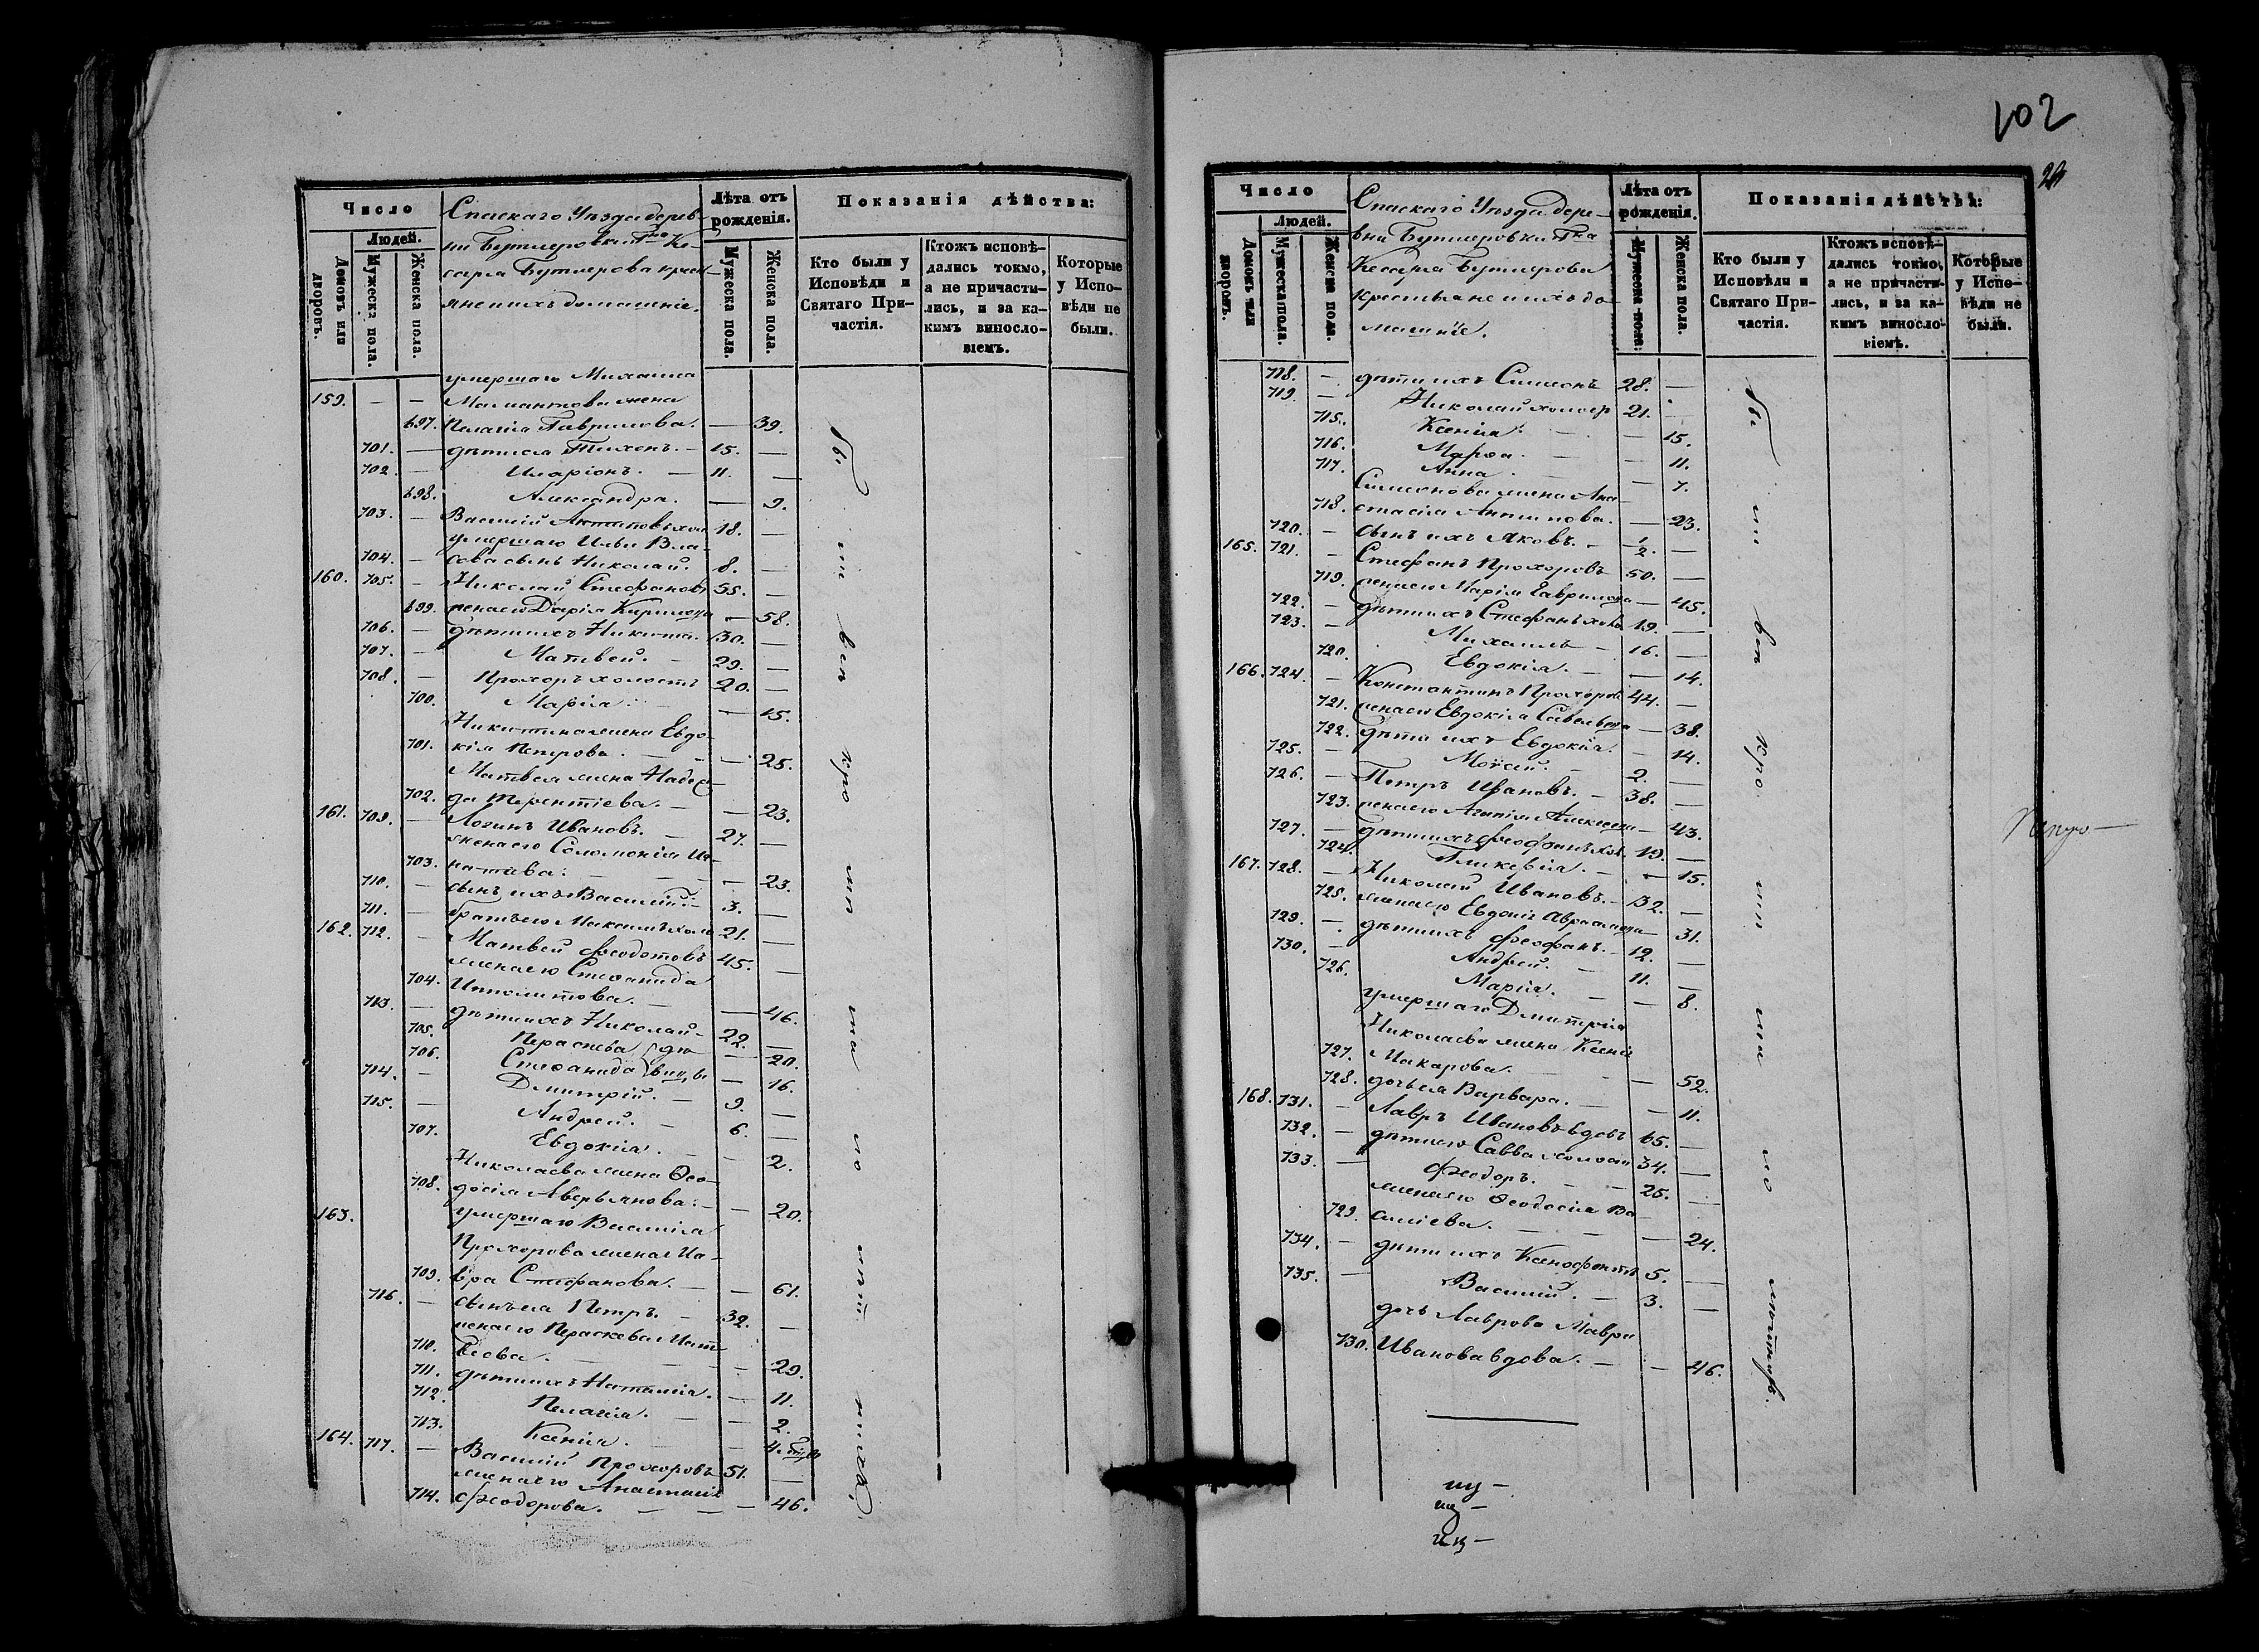 102
Число
Людей.
Домовъ или дворовъ.
Мужеска пола.
Женска пола.
Спаскаго Уѣзда дерев-
ни Бутлеровки Гна Ке-
саря Бутлерова кресть-
яне и ихъ домашніе.
Лѣта отъ рожденія.
Мужеска пола.
Женска пола.
Показанія дѣйства:
Кто были у Исповѣди и Святаго При-частія.
Ктожъ исповѣ-дались токмо, а не причасти-лись, и за ка-кимъ винословіемъ.
Которые у Испо-вѣди не были.
умершаго Михаила
159. — — жена
697. Пелагія Гаврилова. — 39.
701. — дѣти ея Тихонъ. — 15. —
702. — Иларіонъ. — 11. —
698. Александра. — 9.
703. — Василій Антиповъ хол 18. —
умершаго Ильи Вла-
704. — сова сынъ Николай. 8. —
160. 705. — Николай Стефановъ 55. —
699. жена его Дарія Кирилова — 58.
706. — дѣти ихъ Никита. 30. —
707. — Матвей. — 29. —
708. — Прохоръ холостъ 20. —
700. Марія. — 15.
Никитина жена Евдо-
701. кія Петрова. — — 25.
Матвея жена Надеж-
702. да Терентіева. — — 23.
161. 709. — Логинъ Ивановъ. — 27. —
жена его Соломонія Иг-
703. натіева. — — 23.
710. — сынъ ихъ Василій. — 3. —
711. — братъ его Максимъ холо 21. —
162. 712. — Матвей Ѳеодотовъ 45. —
жена его Стефанида
704. Ипполитова. — — 46.
713. — дѣти ихъ Николай — 22. —
705. Параскева — 20.
706. Стефанида — 16.
714. — Дмитрій. — 9. —
715. — Андрей. — 6. —
707. Евдокія. — — 2.
Николаева жена Ѳео-
708. досія Аверьянова. — — 20.
163. умершаго Василія
Прохорова жена
709. Стефанова. — — 61.
716. — сынъ ея Петръ. — 32. —
жена его Параскева
710. — 29.
711. дѣти ихъ Наталія. — 11.
712. Пелагія. — — 2.
713. Ксенія. — —
164. 717. — Василій Прохоровъ 51. —
жена его Анастасія
714. Ѳеодорова. — — 46.
Число
Людей.
Домовъ или дворовъ.
Мужеска пола.
Женска пола.
Спаскаго Уѣзда дере-
вни Бутлеровки Гна
Кесаря Бутлерова
крестьяне и ихъ до-
машніе.
Лѣта отъ рожденія.
Мужеска пола.
Женска пола.
Показанія дѣйства:
Кто были у Исповѣди и Святаго При-частія.
Ктожъ исповѣ-дались токмо, а не причасти-лись, и за ка-кимъ винословіемъ.
Которые у Испо-вѣди не были.
718. — дѣти ихъ Симеонъ 28. —
719. — Николай 21. —
715. Ксенія. — — 15.
716. Марѳа. — — 11.
717. Анна. — — 7.
Симеонова жена Ана-
718. стасія Антипова. — 23.
720. — сынъ ихъ Яковъ. — 1/2. —
165. 721. — Стефанъ Прохоровъ 50. —
719. жена его Марія Гаврилова — 45.
722. — дѣти ихъ Стефанъ 19. —
723. — Михаилъ — 16. —
720. Евдокія. — — 14.
166. 724. — Константинъ Прохоровъ 44. —
721. жена его Евдокія Савельева — 38.
722. дѣти ихъ Евдокія. — 14.
725. — Моѵсей. — 2. —
726. — Петръ Ивановъ. — 38. —
723. жена его Агапія Алексеева — 43.
727. — дѣти ихъ 19. —
724. Гликерія. — — 15.
167. 728. — Николай Ивановъ. — 32. —
725. жена его Евдокія Авраамова — 31.
729. — дѣти ихъ Ѳеофанъ. — 12. —
730. — Андрей. — 11. —
726. Марія. — — 8.
умершаго Дмитрія
Николаева жена Ксенія
727. Макарова. — — 52.
728. дочь ея Варвара. — — 11.
168. 731. — Лавръ Ивановъ вдовъ 65. —
732. — дѣти его Савва холост 34. —
733. — Ѳеодоръ. — 25. —
жена его Ѳеодосія Ва-
729. силіева. — — 24.
734. — дѣти ихъ Ксенофонтъ 5. —
735. — Василій. — 3. —
дочь Лаврова Мавра
730. Иванова вдова. — — 46.